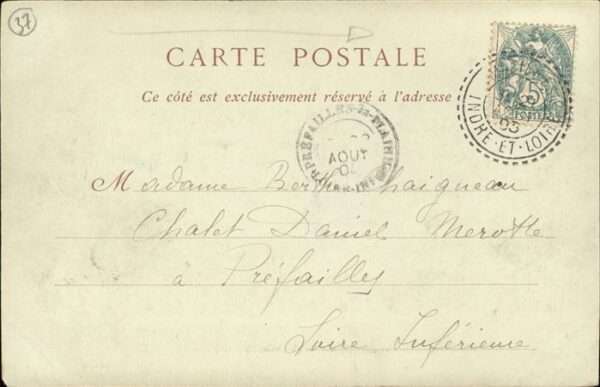 37
CARTE POSTALE
Ce côté est exclusivement réservé à l'adresse
5
INDRE-ET-LOIRE
03
PRÉFAILLES-la-PLAINE
AOUT
Madame Berthe Chaigneau
Chalet Daniel Merotte
à Préfailles
Loire Inférieure